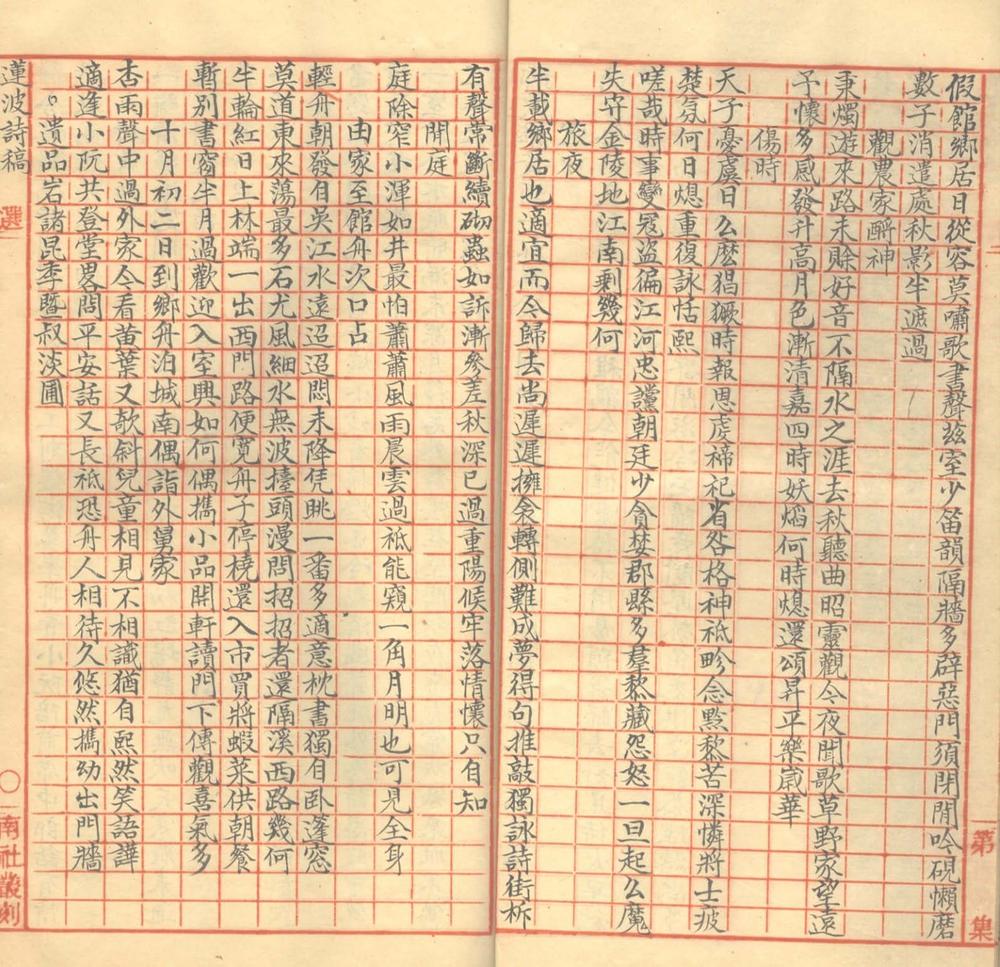 第 集
假館鄉居日從容莫嘯歌書聲茲室少笛韻隔牆多辟惡門須閉閒吟硯懶磨
數子消遣處秋影半遮過
觀農家酬神
秉燭遊來路未賒好音不隔水之涯去秋聽曲昭靈觀今夜聞歌草野家望遠
予懷多感發升高月色漸清嘉四時妖焰何時熄還頌昇平樂歲華
傷時
天子憂虞日么麽猖獗時報恩虔禘祀省咎格神祗畛念黔黎苦深憐將士疲
楚氛何日熄重復詠恬熙
嗟哉時事變寇盜徧江河忠讜朝廷少貪婪郡縣多羣黎藏怨怒一旦起么魔
失守金陵地江南剩幾何
旅夜
半載鄉居也適宜而今歸去尚遲遲擁衾轉側難成夢得句推敲獨詠詩街柝
有聲常斷續砌蟲如訴漸參差秋深已過重陽候牢落情懷只自知
閒庭
庭除窄小渾如井最怕蕭蕭風雨晨雲過祗能窺一角月明也可見全身
由家至館舟次口占
輕舟朝發自吳江水遠迢迢悶未降凭眺一番多適意枕書獨自卧蓬窓
莫道東來蕩最多石尤風細水無波擡頭漫問招招者還隔溪西路幾何
半輪紅日上林端一出西門路便寬舟子停橈還入市買將蝦菜供朝餐
暫別書窗半月過歡迎入室興如何偶攜小品開軒讀門下傳觀喜氣多
十月初二日到鄉舟泊城南偶詣外舅家
杏雨聲中過外家今看黃葉又欹斜兒童相見不相識猶自熙然笑語譁
適逢小阮共登堂畧問平安話又長祗恐舟人相待久悠然攜幼出門牆
遺品岩諸昆季曁叔淡圃
蓮波詩稿 選 〇 南社叢刻